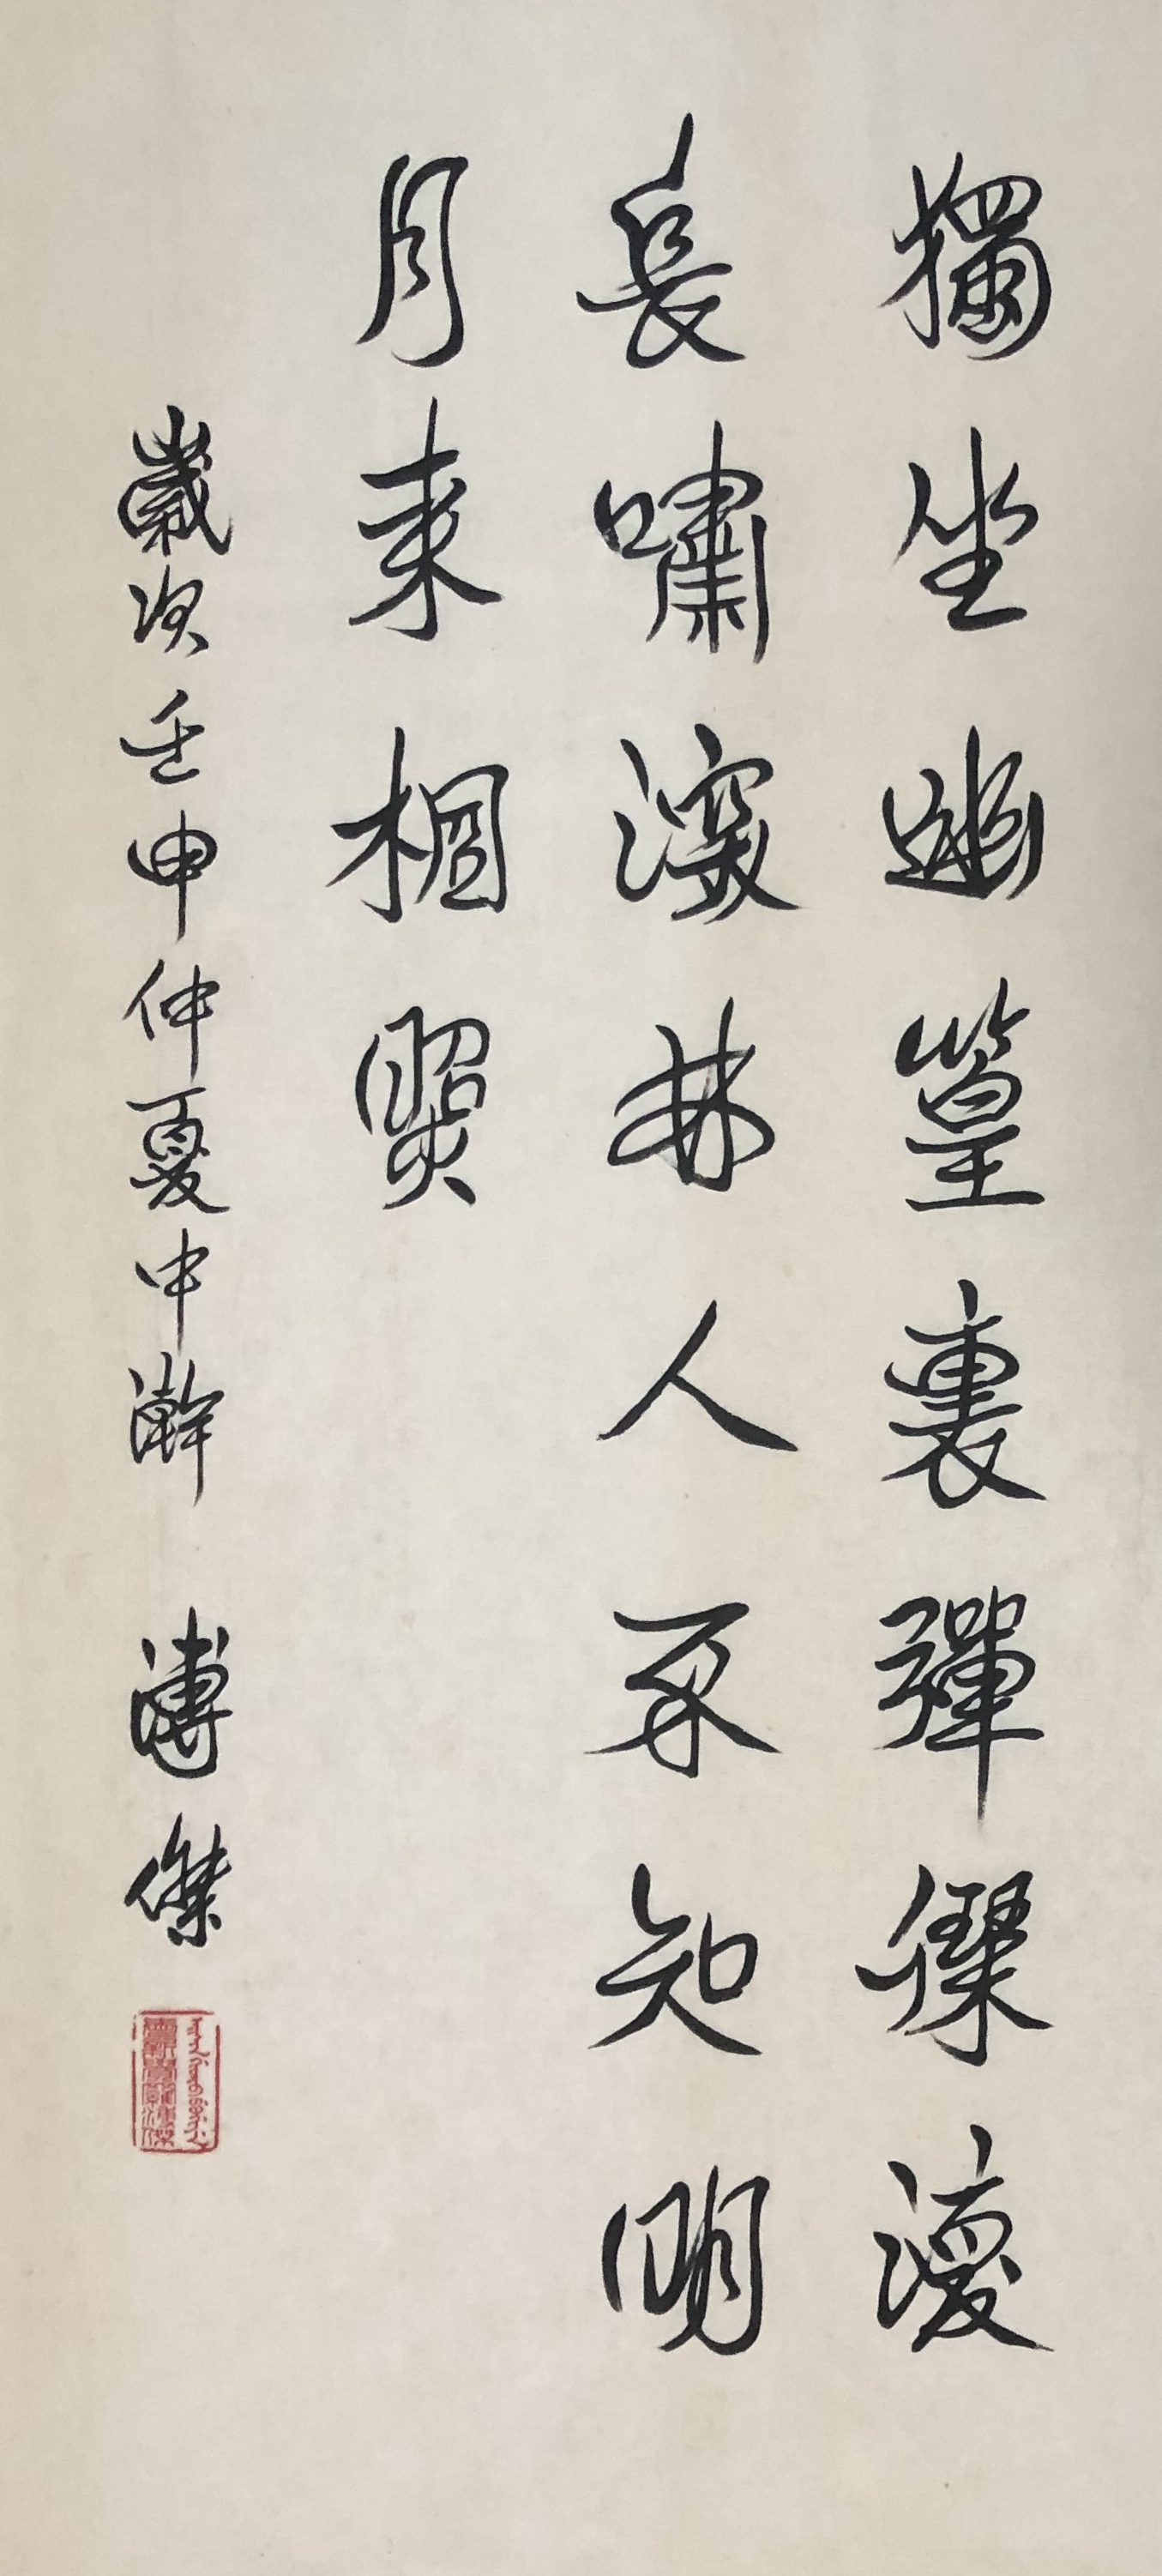 獨坐幽篁裏彈琴復
長嘯深林人不知明
月来相照
歲次壬申仲夏中澣 溥傑